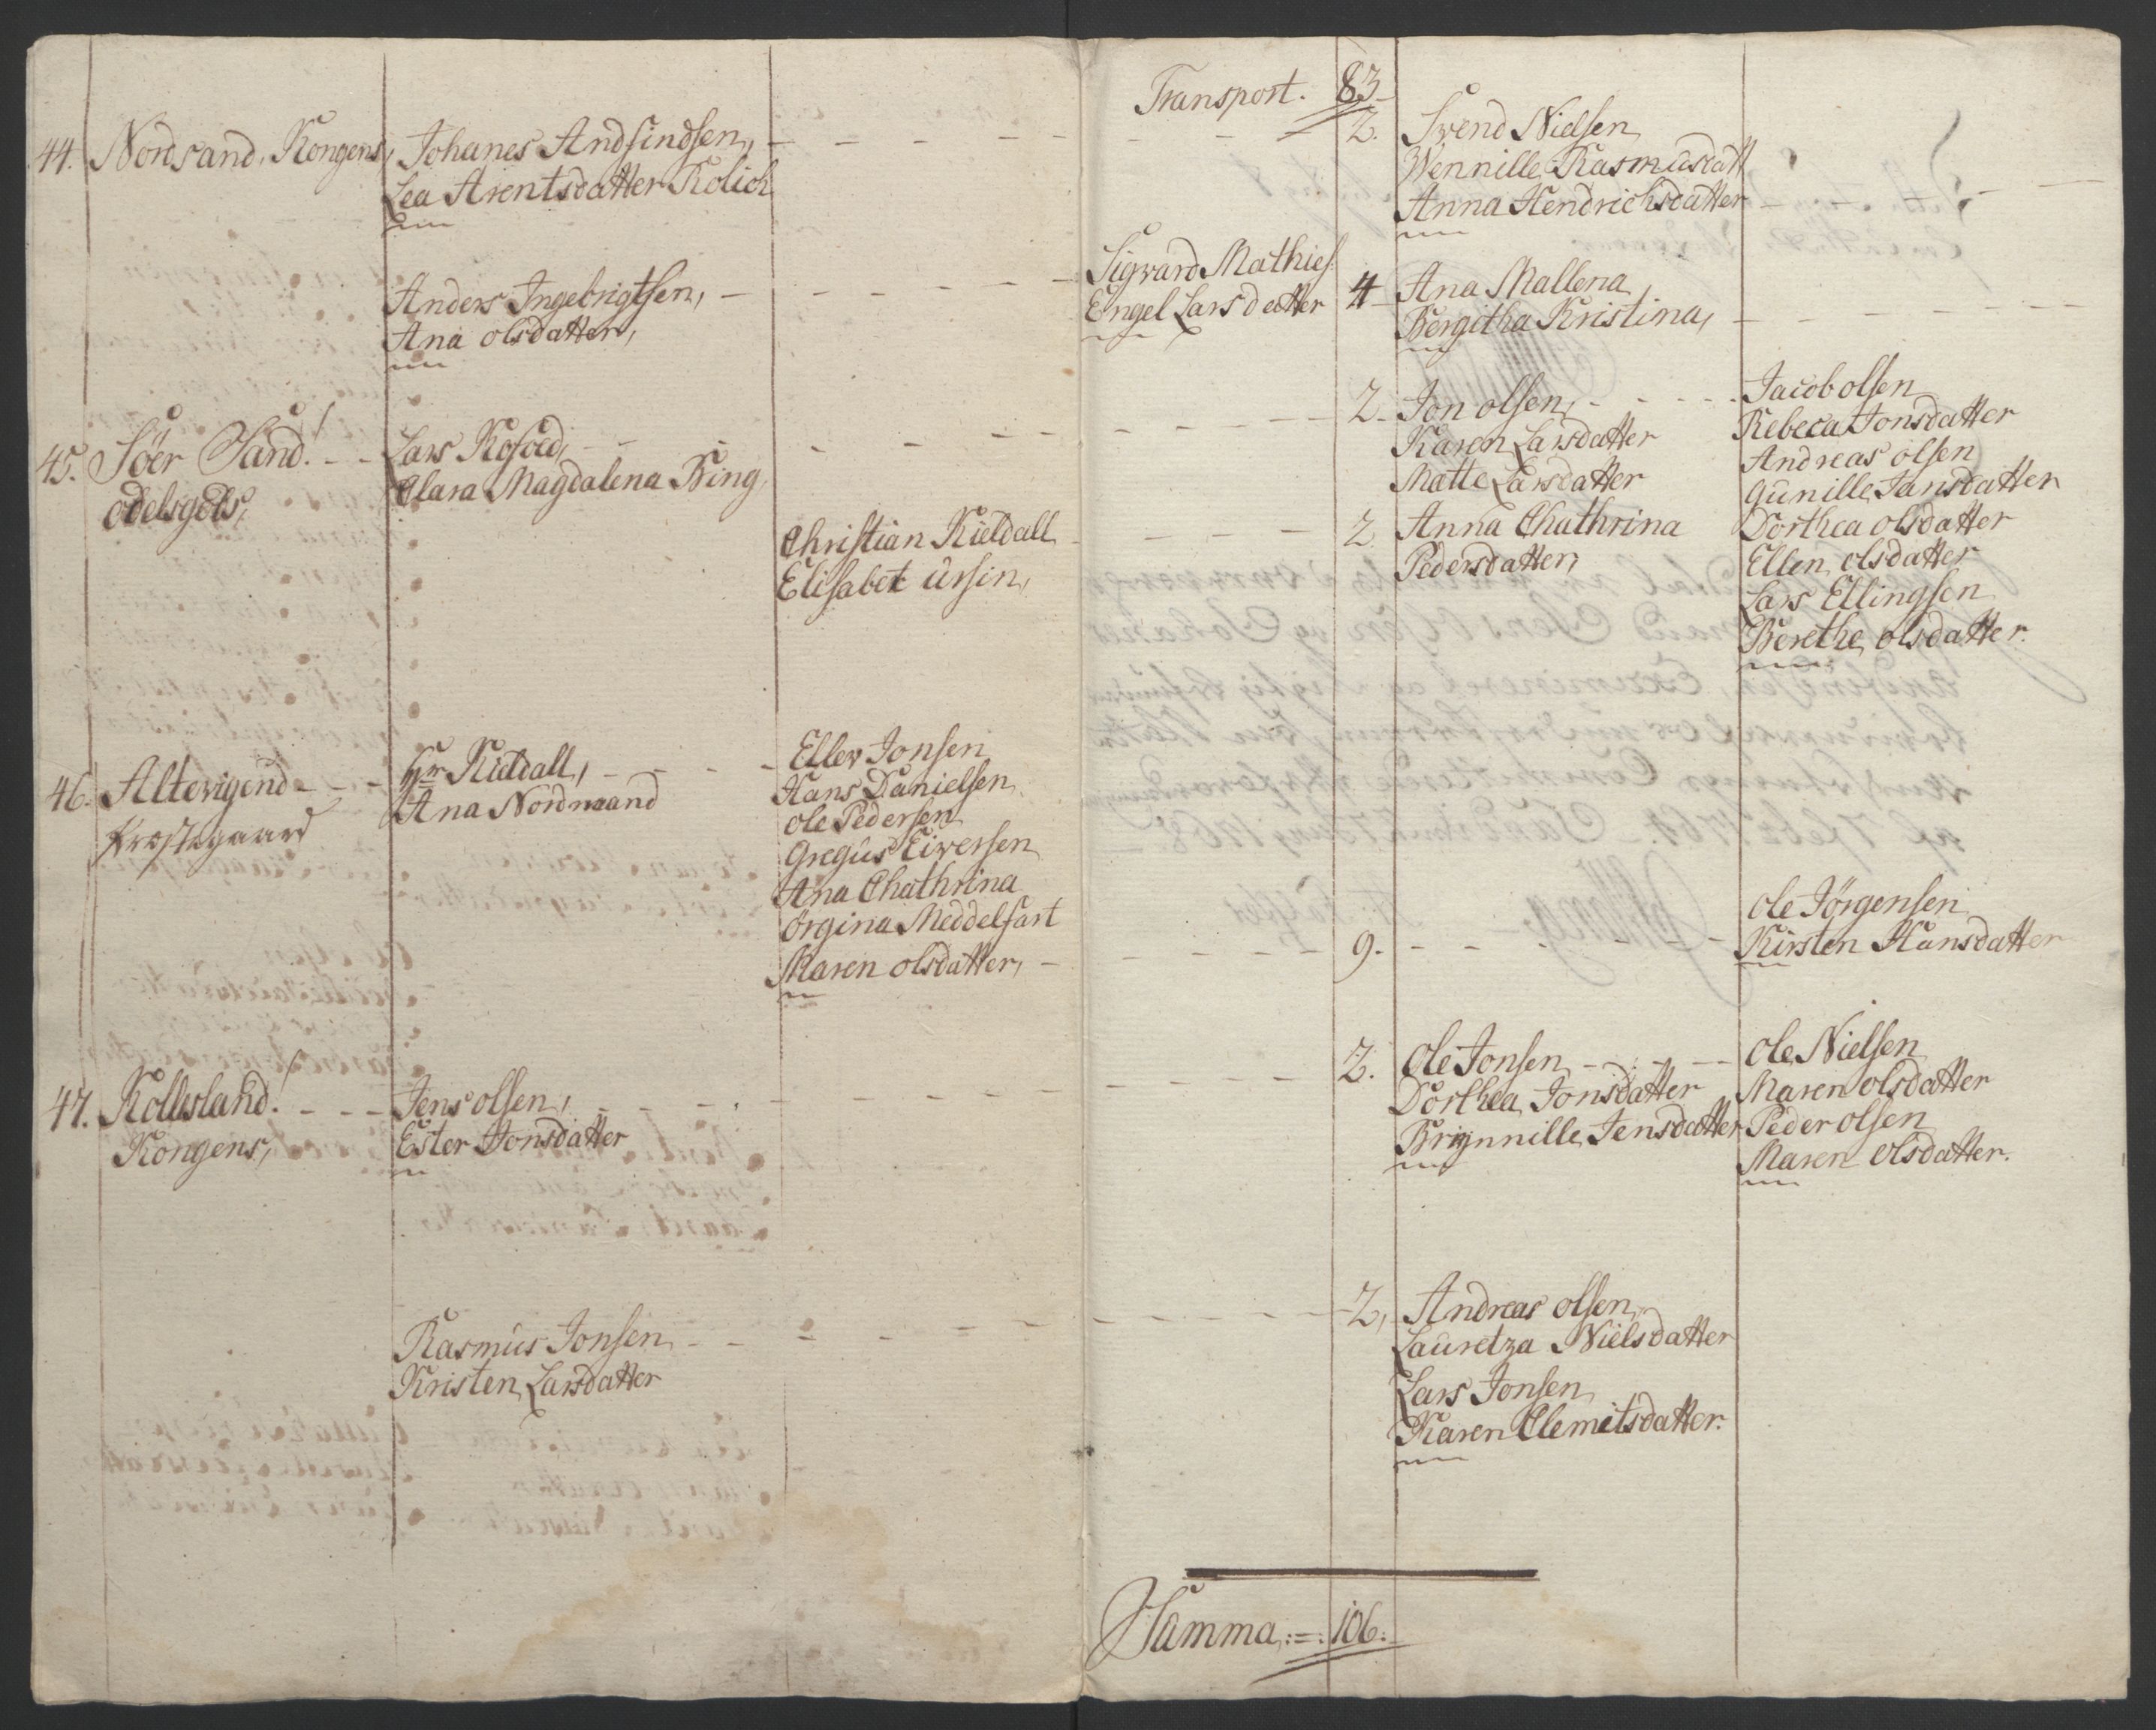 44. Nordsand, Kongens,
Johanes Andsindsen,
Lea Arentsdatter Kolich
Anders Ingebrigtsen,
Ana olsdatter,
45. Söer Sand!
odelsgods,
Lars Kofoed,
Clara Magdalena Bing,
Christian Kieldall
Elisabet ursin,
46. Altevigend
Præstegaard
Hr. Kieldall,
Ana Nordmand
Eller Jonsen
Hans Danielsen
ole Pedersen
Gregus Eiversen
Ana Chathrina
örgina Meddelfart
Maren olsdatter,
47. Kollesland!
Kongens,
Jens olsen,
Ester Jonsdatter
Rasmus Jonsen
Kristen Larsdatter
Transport. 83
2. Svend Nielsen
Wennille Rasmusdatt
Anna Hendrichsdatter
Sigvard Mathies:
Engel Larsdatter
4 Ana Mallena
Bergitha Kristina,
2. Jon olsen,
Karen Larsdatter
Matte Larsdatter
2 Anna Chathrina
Pedersdatter,
Jacob olsen
Rebeca Jonsdatter
Andreas olsen
Gunille Jansdatter
Dorthea olsdatter
Ellen olsdatter
Lars Ellingsen
Berethe olsdatter.
9.
ole Jörgensen
Kirsten Hansdatter
2. Ole Jonsen
Dorthea Jonsdatter
Brynnille Jensdatter
ole Nielsen
Maren olsdatter
Peder olsen
Maren olsdatter.
2, Andreas olsen,
Lauretza Nielsdatter
Lars Jonsen
Karen Clemitsdatter.
Samma:=: 106: